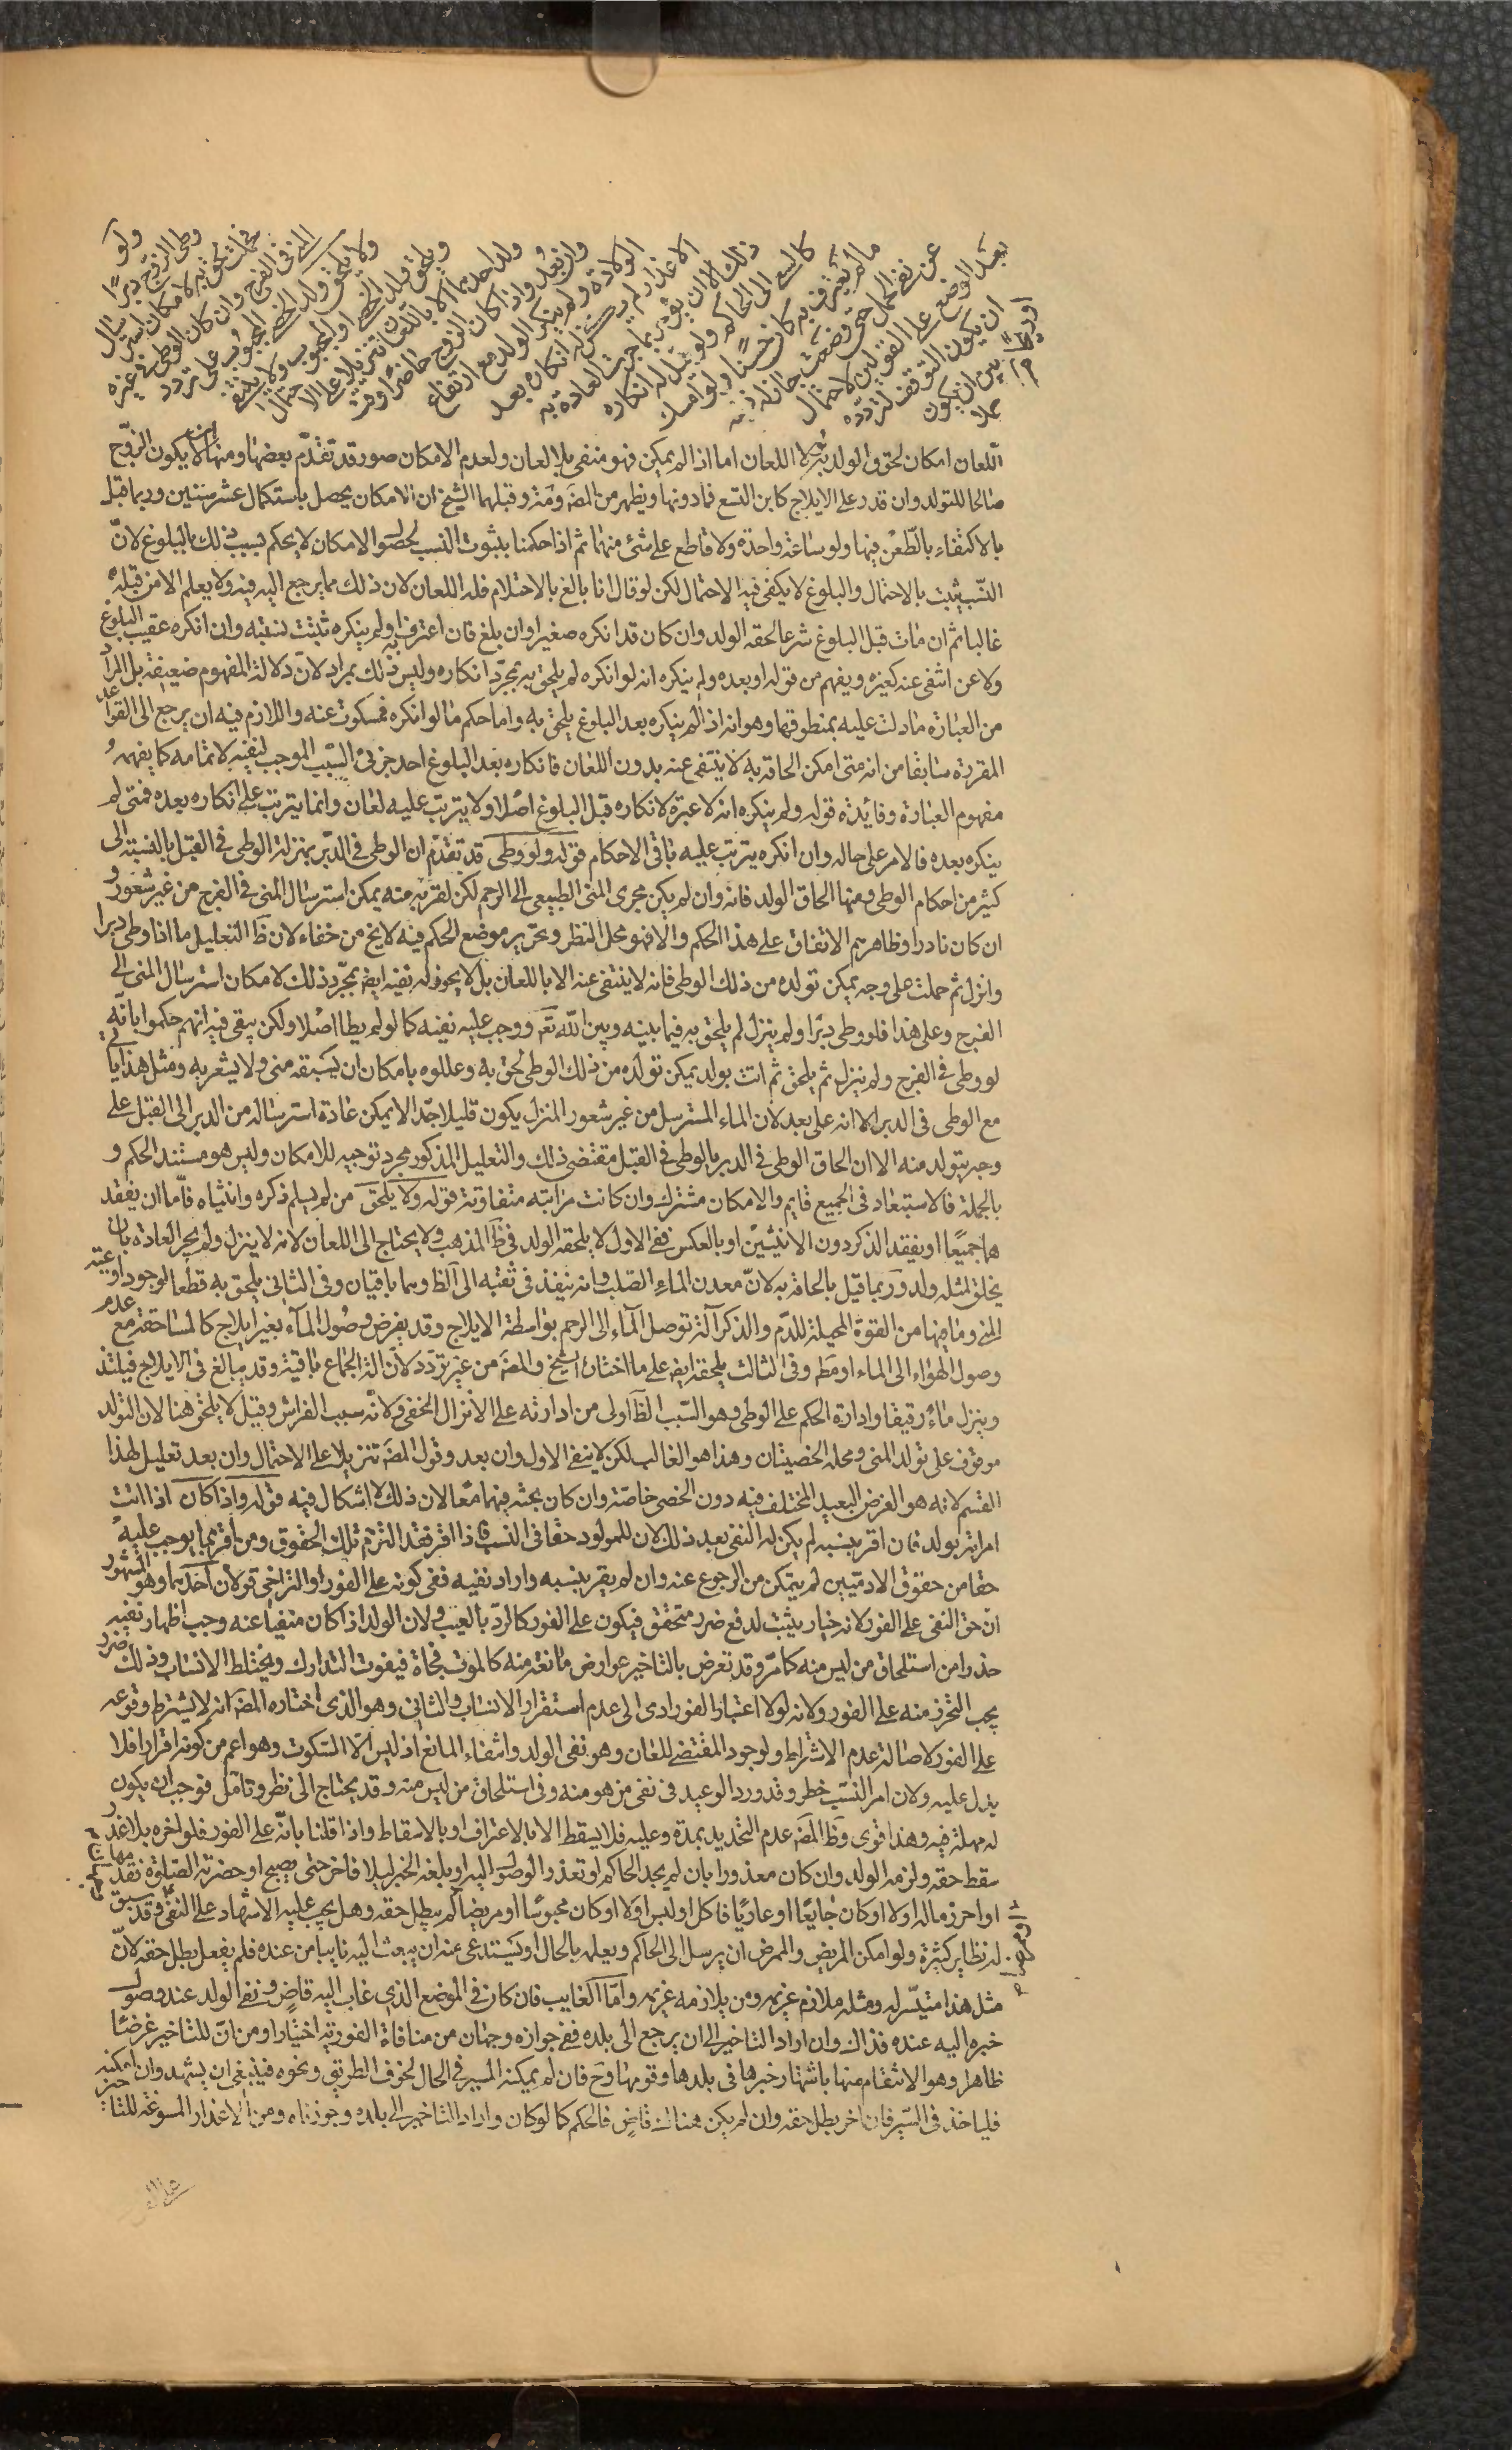 ولو
وطئ الزوج دبرا
فحملت لحق به لامكان استرسال
المني في الفرج وان كان الوطئ في غيره
ولا يلحق ولد الخصي المجبوب على تردد
ويلحق ولد الخصي او المجبوب ولا ينتفي
ولد احدهما الا باللعان تنزيلا على الاحتمال
وان بعد واذا كان الزوج حاضرا وقت
الولادة ولم ينكر الولد مع ارتفاع
الاعذار لم يكن له انكاره بعد
ذلك الا ان يؤخر بما جرت العادة به
كالسعي الى الحاكم ولو قيل له انكاره
ما لم يعترف به كان حسنا ولو امسك
عن نفي الحمل حتى وضعت جاز له نفيه
بعد الوضع على القولين لاحتمال
ان يكون التوقف لتردده
بين ان يكون
حملا
اللعان امكان لحوق الولد به لولا اللعان اما اذا لم يمكن فهو منفي بلا لعان ولعدم الامكان صور قد تقدم بعضها ومنها ان لا يكون الزوج
صالحا للتولد وان قدر على الايلاج كابن التسع فما دونها ويظهر من المصَ وقبلهما الشيخ ان الامكان يحصل باستكمال عشر سنين وربما قيل
بالاكتفاء بالطعن فيها ولو ساعة واحدة ولا قاطع على شئ منهما ثم اذا حكمنا بثبوت النسب لحصول الامكان لا يحكم بسبب ذلك بالبلوغ لان
النسب يثبت بالاحتمال والبلوغ لا يكفي فيه الاحتمال لكن لو قال انا بالغ بالاحتلام فله اللعان لان ذلك مما يرجع اليه فيه ولا يعلم الا من قبله
غالبا ثم ان مات قبل البلوغ شرعا لحقه الولد وان كان قد انكره صغيرا وان بلغ فان اعترف به ولم ينكره ثبتت نسبته وان انكره عقيب البلوغ
ولاعن انتفى عنه كغيره ويفهم من قوله او بعده ولم ينكره انه لو انكره لم يلحق به بمجرد انكاره وليس ذلك بمراد لان دلالة المفهوم ضعيفة بل المراد
من العبارة ما دلت عليه بمنطوقها وهو انه اذا لم ينكره بعد البلوغ يلحق به واما حكم ما لو انكره فمسكوت عنه واللازم فيه ان يرجع الى القواعد
المقررة سابقا من انه متى امكن الحاقه به لا ينتفي عنه بدون اللعان فانكاره بعد البلوغ احد جزئي السبب الموجب لنفيه لا تمامه كما يفهمه
مفهوم العبارة وفائدة قوله ولم ينكره انه لا عبرة لانكاره قبل البلوغ اصلا ولا يترتب عليه لعان وانما يترتب على انكاره بعده فمتى لم
ينكره بعده فالامر على حاله وان انكره يترتب عليه باقي الاحكام قوله ولو وطئ قد تقدم ان الوطئ في الدبر بمنزلة الوطئ في القبل بالنسبة الى
كثير من احكام الوطئ ومنها الحاق الولد فانه وان لم يكن مجرى المني الطبيعي الى الرحم لكن لقربه منه يمكن استرسال المني في الفرج من غير شعور و
ان كان نادرا وظاهرهم الاتفاق على هذا الحكم والا فهو محل النظر وتحرير موضع الحكم فيه لا يخ من خفاء لان ظَ التعليل ما اذا وطئ دبرا
وانزل ثم حملت على وجه يمكن تولده من ذلك الوطئ فانه لا ينتفي عنه الا باللعان بل لا يجوز له نفيه ايضَ بمجرد ذلك لامكان استرسال المني الى
الفرج وعلى هذا فلو وطئ دبرا ولم ينزل لم يلحق به فيما بينه وبين الله تعَ ووجب عليه نفيه كما لو لم يطا اصلا ولكن يبقى فيه انهم حكموا بانه
لو وطئ في الفرج ولم ينزل ثم اتت بولد يمكن تولده من ذلك الوطئ لحق به وعللوه بامكان ان يسبقه مني ولا يشعر به ومثل هذا ياتي
مع الوطئ في الدبر الا انه على بعد لان الماء المسترسل من غير شعور المنزل يكون قليلا جدا لا يمكن عادة استرساله من الدبر الى القبل على
وجه يتولد منه الا ان الحاق الوطئ في الدبر بالوطئ في القبل مقتضى ذلك والتعليل المذكور مجرد توجيه للامكان وليس هو مستند الحكم و
بالجملة فالاستبعاد في الجميع قايم والامكان مشترك وان كانت مراتبه متفاوتة قوله ولا يلحق من لم يسلم ذكره وانثياه فاما ان يفقد
هما جميعا او يفقد الذكر دون الانثيين او بالعكس ففي الاول لا يلحقه الولد في ظَ المذهب ولا يحتاج الى اللعان لانه لا ينزل ولم يجر العادة بان
يخلق لمثله ولد وربما قيل بالحاقه به لان معدن الماء الصلب وانه ينفذ في ثقبه الى الظَ وهما باقيان وفي الثاني يلحق به قطعا لوجود اوعية
المني وما فيها من القوة المحيلة للدم والذكر آلة توصل الماء الى الرحم بواسطة الايلاج وقد يفرض وصول الماء بغير ايلاج كالمساحقة مع عدم
وصول الهواء الى الماء او مطَ وفي الثالث يلحقه ايضَ على ما اختاره الشيخ والمصَ من غير تردد لان الة الجماع باقية وقد يبالغ في الايلاج فيلتذ
وينزل ماء رقيقا وادارة الحكم على الوطئ وهو السبب الظَ اولى من ادارته على الانزال الخفي ولانه سبب الفراش وقيل لا يلحق هنا لان التولد
موقوف على تولد المني ومحله الخصيتان وهذا هو الغالب لكن لا ينفي الاول وان بعد وقول المصَ تنزيلا على الاحتمال وان بعد تعليل لهذا
القسم لانه هو الفرض البعيد المختلف فيه دون الخصي خاصة وان كان بحثه فيهما معا لان ذلك لا اشكال فيه قوله واذا كان اذا اتت
امراته بولد فان اقر بنسبه لم يكن له النفي بعد ذلك لان للمولود حقا في النسب فاذا اقر فقد التزم تلك الحقوق ومن اقر بما يوجب عليه
حقا من حقوق الادميين لم يتمكن من الرجوع عنه وان لم يقر بنسبه واراد نفيه ففي كونه على الفور او التراخي قولان احدهما وهو المشهور
ان حق النفي على الفور لانه خيار يثبت لدفع ضرر متحقق فيكون على الفور كالرد بالعيب ولان الولد اذا كان منفيا عنه وجب اظهار نفيه
حذرا من استلحاق من ليس منه كما مر وقد تعرض بالتاخير عوارض مانعة منه كالموت فجاة فيفوت التدارك ويختلط الانساب وذلك ضرر
يجب التحرز منه على الفور ولانه لولا اعتبار الفور ادى الى عدم استقرار الانساب والثاني وهو الذي اختاره المصَ انه لا يشترط وقوعه
على الفور لاصالة عدم الاشتراط ولوجود المقتضي للعان وهو نفي الولد وانتفاء المانع اذ ليس الا السكوت وهو اعم من كونه اقرارا فلا
يدل عليه ولان امر النسب خطر وقد ورد الوعيد في نفي من هو منه وفي استلحاق من ليس منه وقد يحتاج الى نظر وتامل فوجب ان يكون
له مهلة فيه وهذا قوي وظَ المصَ عدم التحديد بمدة وعليه فلا يسقط الا بالاعتراف او بالاسقاط واذا قلنا بانه على الفور فلو اخره بلا عذر
سقط حقه ولزمه الولد وان كان معذورا بان لم يجد الحاكم او تعذر الوصول اليه او بلغه الخبر ليلا فاخر حتى يصبح او حضرته الصلوة فقدمها
او احرز ماله اولا او كان جايعا او عاريا فاكل او لبس اولا او كان محبوسا او مريضا لم يبطل حقه وهل يجب عليه الاشهاد على النفي وقد سبق
له نظاير كثيرة ولو امكن المريض والممرض ان يرسل الى الحاكم ويعلمه بالحال او يستدعي منه ان يبعث اليه نايبا من عنده فلم يفعل بطل حقه لان
مثل هذا متيسر له ومثله ملازم غريمه ومن يلازمه غريمه واما الغايب فان كان في الموضع الذي غاب اليه قاض ونفى الولد عند وصول
خبره اليه عنده فذاك وان اراد التاخير الى ان يرجع الى بلده ففي جوازه وجهان من منافاة الفورية اختيارا ومن ان للتاخير غرضا
ظاهرا وهو الانتقام منها باشتهار خبرها في بلدها وقومها وحَ فان لم يمكنه السير في الحال لخوف الطريق ونحوه فينبغي ان يشهد وان امكنه
فلياخذ في السير فان اخر بطل حقه وان لم يكن هناك قاض فالحكم كما لو كان واراد التاخير الى بلده وجوزناه ومن الاعذار المسوغة للتاخير